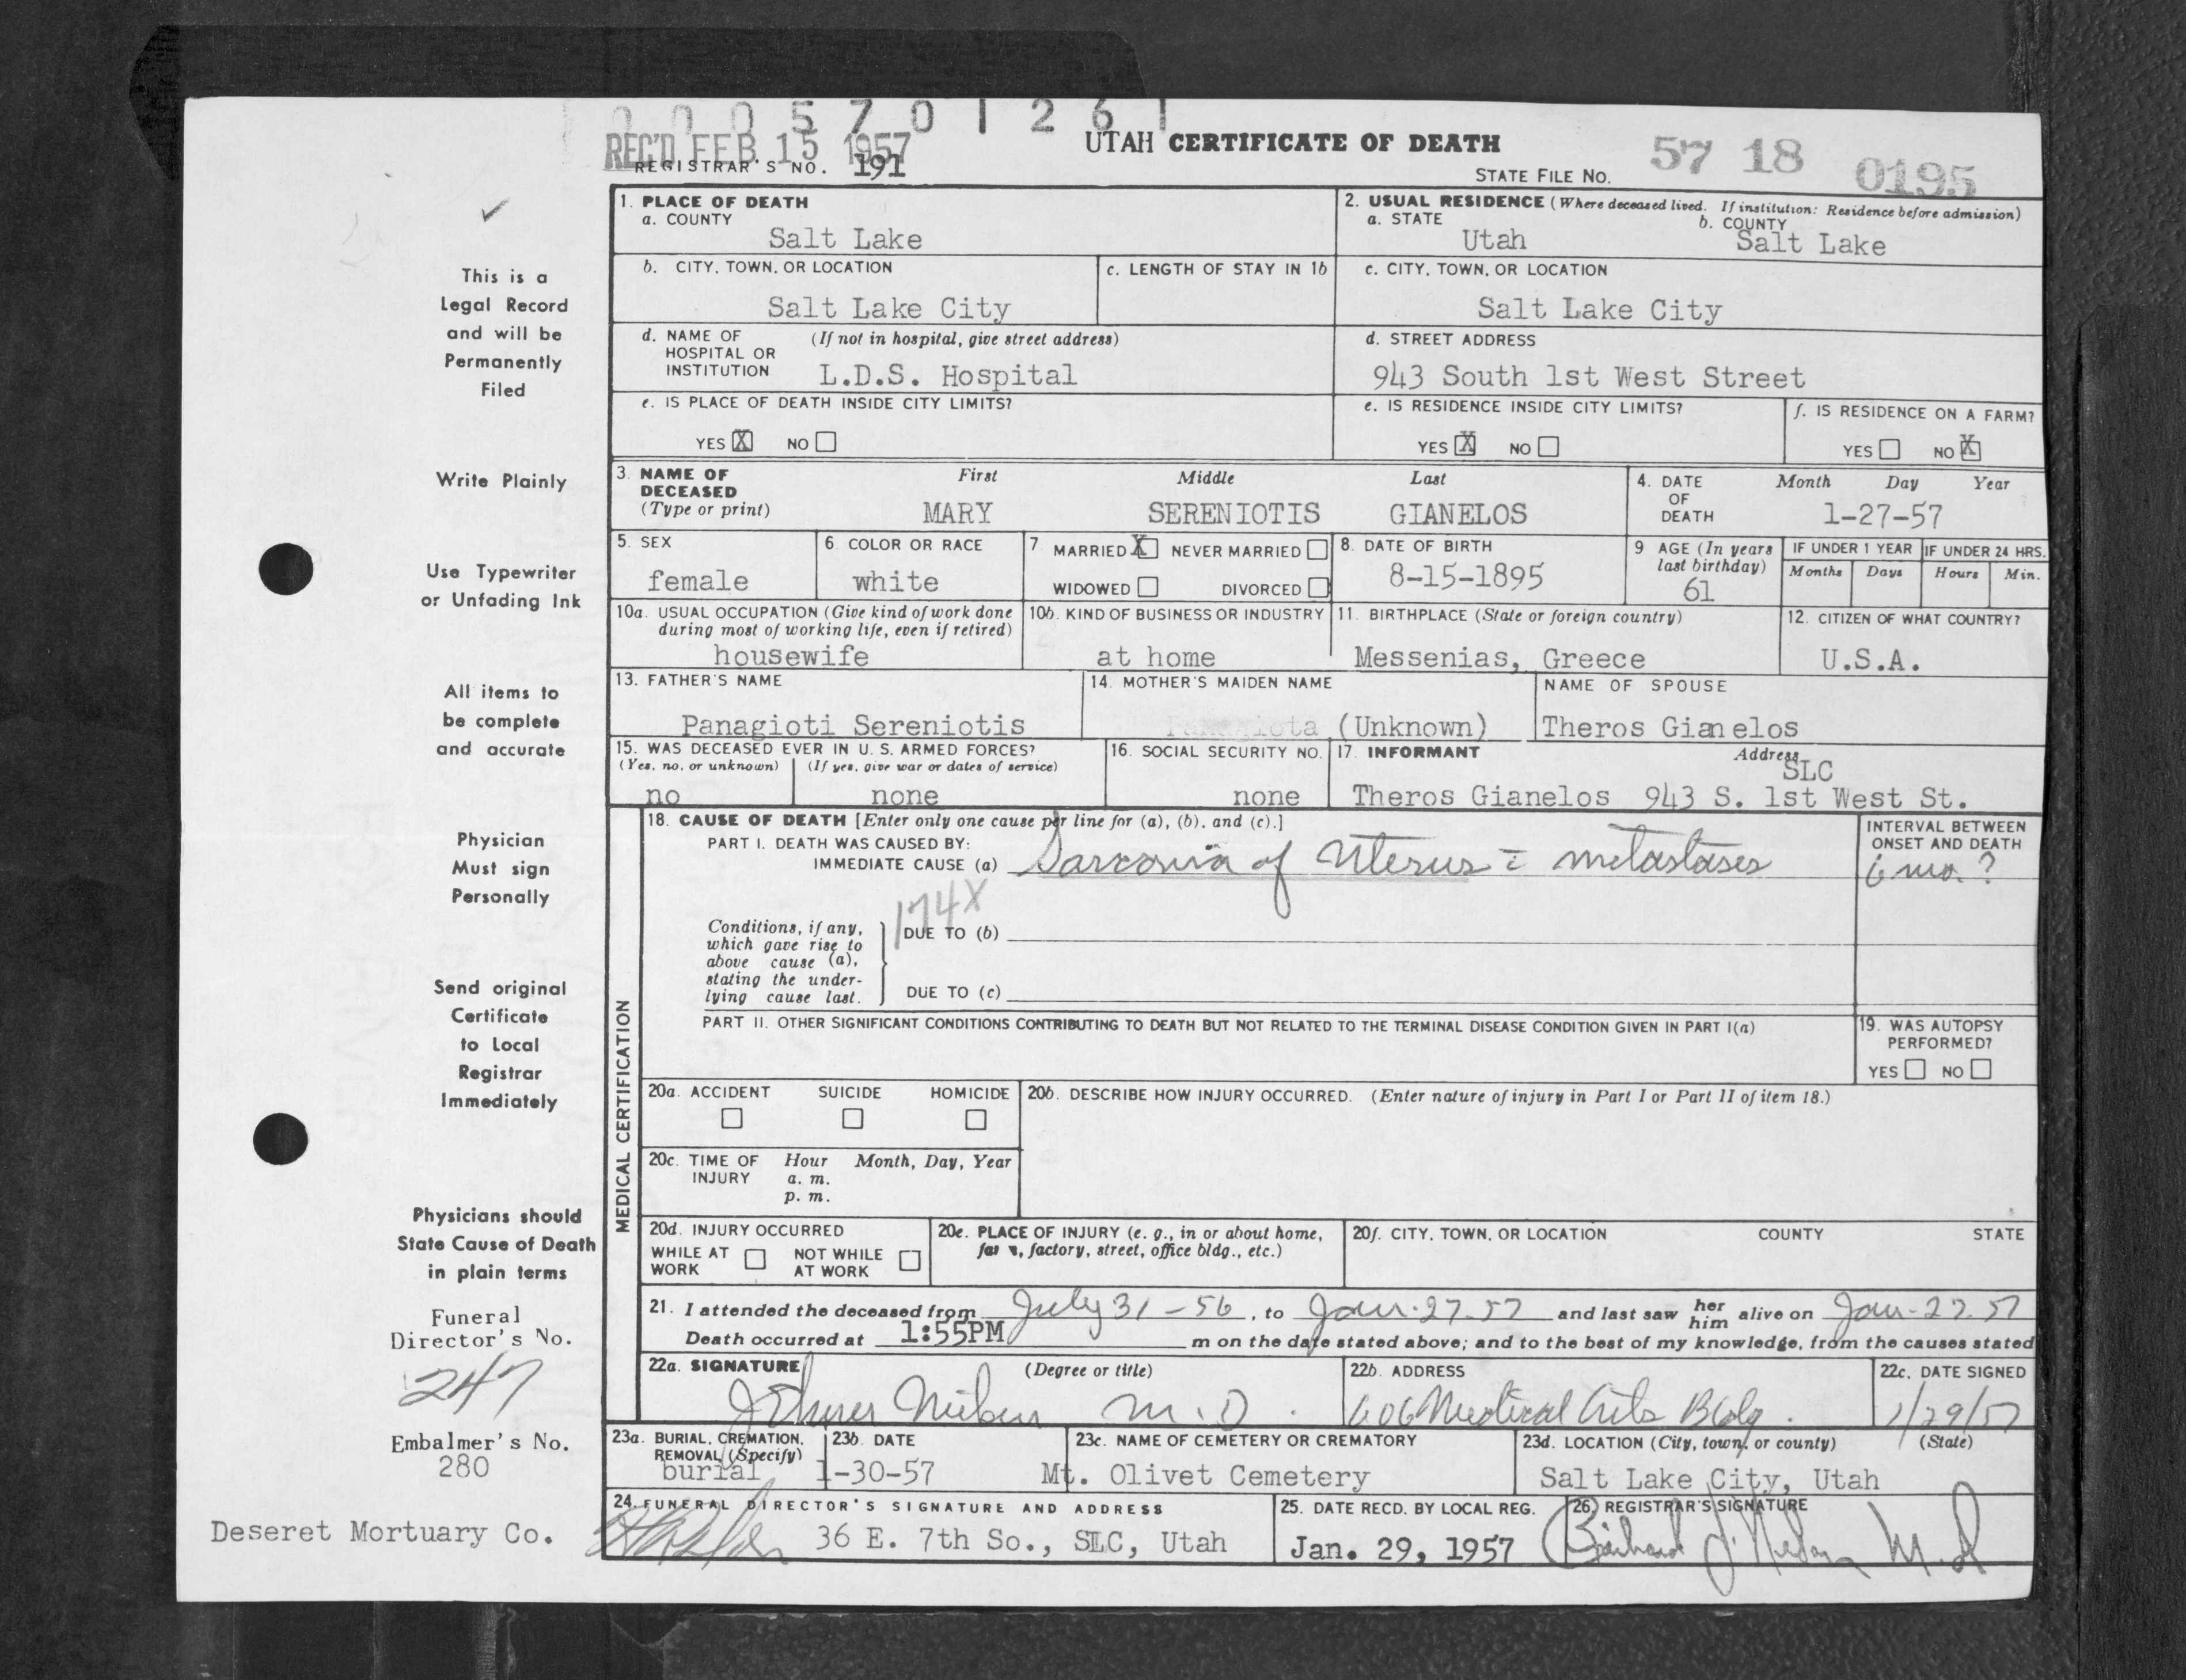 0 0 0 5 7 0 1 2 6 1
REC'D FEB 15 1957
REGISTRAR'S NO. 191
UTAH CERTIFICATE OF DEATH
STATE FILE NO. 57 18 0195
1. PLACE OF DEATH
a. COUNTY
Salt Lake
2. USUAL RESIDENCE (Where deceased lived. If institution: Residence before admission)
a. STATE b. COUNTY
Utah Salt Lake
b. CITY, TOWN, OR LOCATION
Salt Lake City
c. LENGTH OF STAY IN 1b
c. CITY, TOWN, OR LOCATION
Salt Lake City
d. NAME OF (If not in hospital, give street address)
HOSPITAL OR
INSTITUTION L.D.S. Hospital
d. STREET ADDRESS
943 South 1st West Street
e. IS PLACE OF DEATH INSIDE CITY LIMITS?
YES X NO
e. IS RESIDENCE INSIDE CITY LIMITS?
YES X NO
f. IS RESIDENCE ON A FARM?
YES NO X
3. NAME OF DECEASED (Type or print)
First Middle Last
MARY SERENIOTIS GIANELOS
4. DATE OF DEATH
Month Day Year
1-27-57
5. SEX
female
6. COLOR OR RACE
white
7 MARRIED X NEVER MARRIED
WIDOWED DIVORCED
8. DATE OF BIRTH
8-15-1895
9 AGE (In years last birthday)
61
IF UNDER 1 YEAR IF UNDER 24 HRS.
Months Days Hours Min.
10a. USUAL OCCUPATION (Give kind of work done
during most of working life, even if retired)
housewife
10b. KIND OF BUSINESS OR INDUSTRY
at home
11. BIRTHPLACE (State or foreign country)
Messenias, Greece
12. CITIZEN OF WHAT COUNTRY?
U.S.A.
13. FATHER'S NAME
Panagioti Sereniotis
14. MOTHER'S MAIDEN NAME
(Unknown)
NAME OF SPOUSE
Theros Gianelos
15. WAS DECEASED EVER IN U. S. ARMED FORCES?
(Yes, no, or unknown) (If yes, give war or dates of service)
no none
16. SOCIAL SECURITY NO.
none
17. INFORMANT Address
SLC
Theros Gianelos 943 S. 1st West St.
MEDICAL CERTIFICATION
18. CAUSE OF DEATH [Enter only one cause per line for (a), (b), and (c).]
PART I. DEATH WAS CAUSED BY:
IMMEDIATE CAUSE (a) Sarcoma of Uterus c̄ metastases
INTERVAL BETWEEN
ONSET AND DEATH
6 mo. ?
174X
Conditions, if any,
which gave rise to
above cause (a),
stating the under-
lying cause last.
DUE TO (b)
DUE TO (c)
PART II. OTHER SIGNIFICANT CONDITIONS CONTRIBUTING TO DEATH BUT NOT RELATED TO THE TERMINAL DISEASE CONDITION GIVEN IN PART I(a)
19. WAS AUTOPSY
PERFORMED?
YES NO
20a. ACCIDENT SUICIDE HOMICIDE
20b. DESCRIBE HOW INJURY OCCURRED. (Enter nature of injury in Part I or Part II of item 18.)
20c. TIME OF INJURY Hour Month, Day, Year
a. m.
p. m.
20d. INJURY OCCURRED
WHILE AT WORK NOT WHILE AT WORK
20e. PLACE OF INJURY (e. g., in or about home,
factory, street, office bldg., etc.)
20f. CITY, TOWN, OR LOCATION COUNTY STATE
21. I attended the deceased from July 31-56, to Jan. 27-57 and last saw her him alive on Jan-27-57
Death occurred at 1:55PM m on the date stated above; and to the best of my knowledge, from the causes stated
22a. SIGNATURE (Degree or title)
M.D.
22b. ADDRESS
606 Medical Arts Bldg.
22c. DATE SIGNED
1/29/57
23a. BURIAL, CREMATION,
REMOVAL (Specify)
burial
23b. DATE
1-30-57
23c. NAME OF CEMETERY OR CREMATORY
Mt. Olivet Cemetery
23d. LOCATION (City, town, or county) (State)
Salt Lake City, Utah
24. FUNERAL DIRECTOR'S SIGNATURE AND ADDRESS
36 E. 7th So., SLC, Utah
25. DATE RECD. BY LOCAL REG.
Jan. 29, 1957
26. REGISTRAR'S SIGNATURE
M.D.
This is a
Legal Record
and will be
Permanently
Filed
Write Plainly
Use Typewriter
or Unfading Ink
All items to
be complete
and accurate
Physician
Must sign
Personally
Send original
Certificate
to Local
Registrar
Immediately
Physicians should
State Cause of Death
in plain terms
Funeral
Director's No.
247
Embalmer's No.
280
Deseret Mortuary Co.